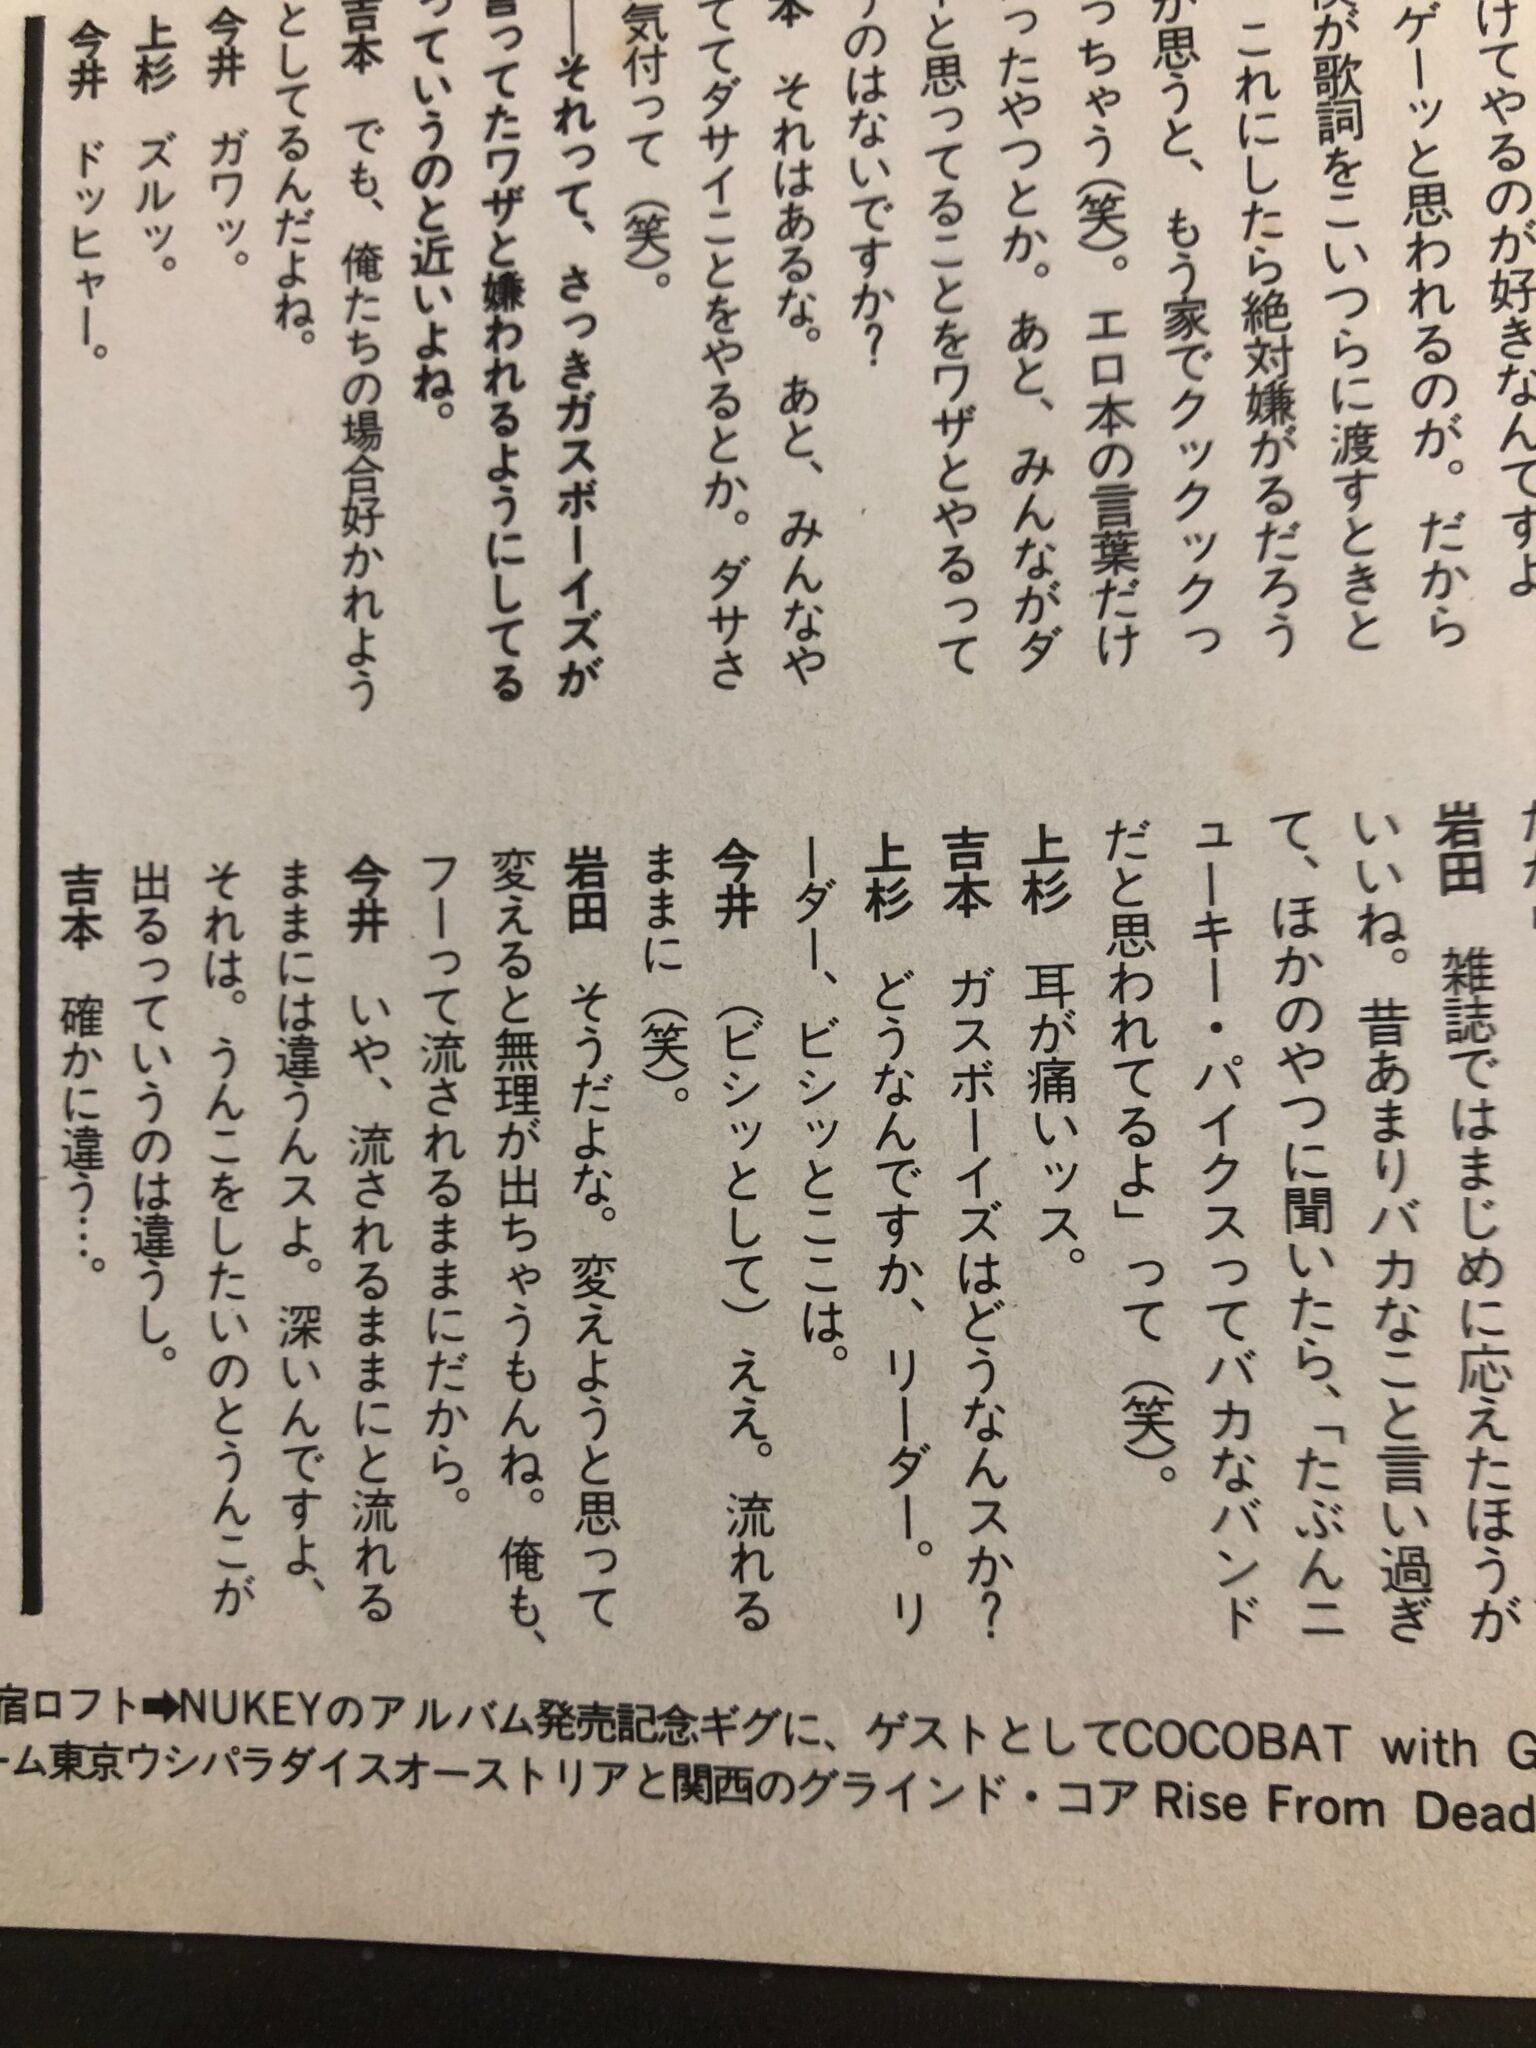 けてやるのが好きなんですよ
ゲーッと思われるのが。だから
が歌詞をこいつらに渡すときと
これにしたら絶対嫌がるだろう
が思うと、もう家でクックックっ
っちゃう(笑)。エロ本の言葉だけ
ったやつとか。あと、みんながダ
と思ってることをワザとやるって
のはないですか?
本　それはあるな。あと、みんなや
ててダサイことをやるとか。ダサさ
気付って(笑)。
――それって、さっきガスボーイズが
言ってたワザと嫌われるようにしてる
っていうのと近いよね。
吉本　でも、俺たちの場合好かれよう
としてるんだよね。
今井　ガワッ。
上杉　ズルッ。
今井　ドッヒャー。
岩田　雑誌ではまじめに応えたほうが
いいね。昔あまりバカなこと言い過ぎ
て、ほかのやつに聞いたら、「たぶんニ
ューキー・パイクスってバカなバンド
だと思われてるよ」って(笑)。
上杉　耳が痛いッス。
吉本　ガスボーイズはどうなんスか?
上杉　どうなんですか、リーダー。リ
ーダー、ビシッとここは。
今井　(ビシッとして)ええ。流れる
ままに(笑)。
岩田　そうだよな。変えようと思って
変えると無理が出ちゃうもんね。俺も、
フーって流されるままにだから。
今井　いや、流されるままにと流れる
ままには違うんスよ。深いんですよ、
それは。うんこをしたいのとうんこが
出るっていうのは違うし。
吉本　確かに違う…。
宿ロフト➡NUKEYのアルバム発売記念ギグに、ゲストとしてCOCOBAT with G
ーム東京ウシパラダイスオーストリアと関西のグラインド・コアRise From Dead